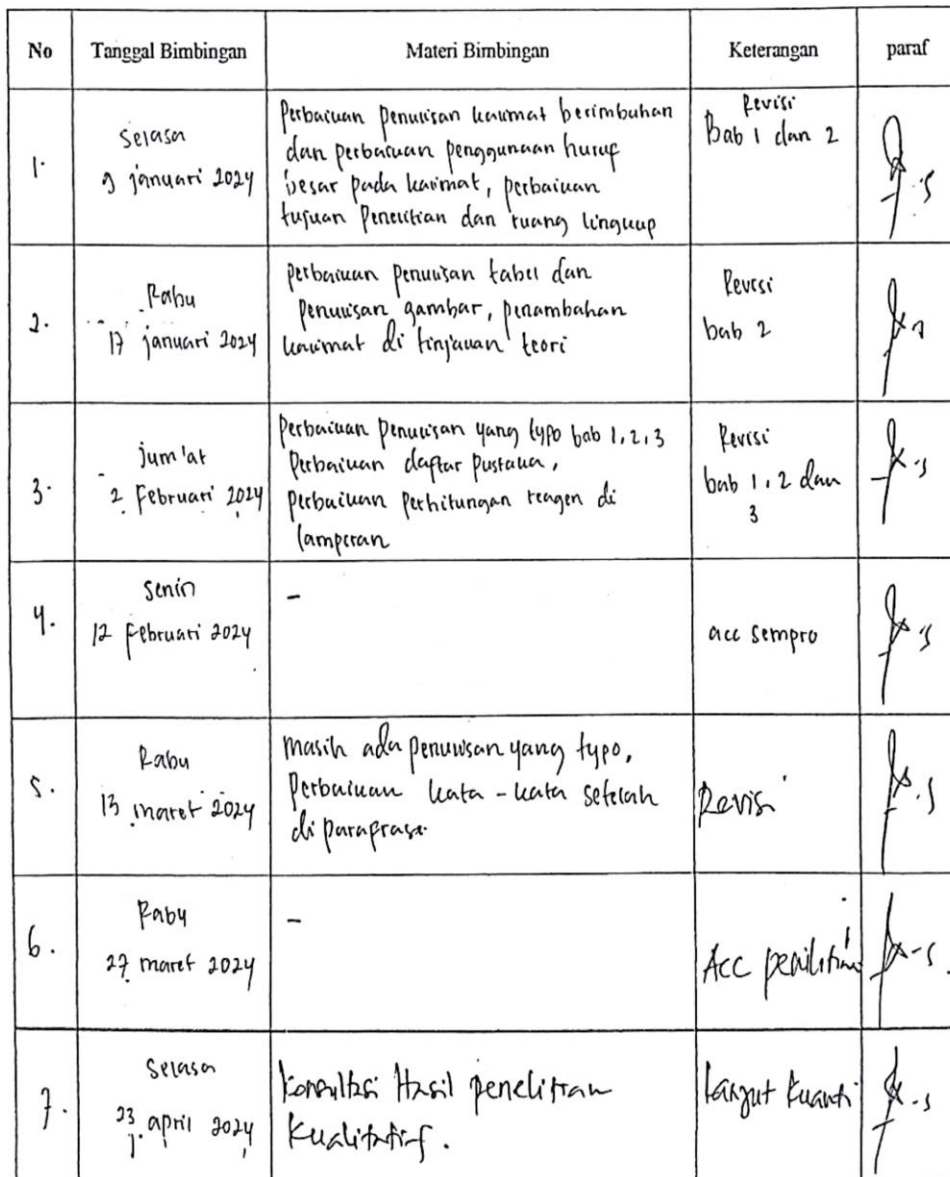 No Tanggal Bimbingan Materi Bimbingan Keterangan paraf
1. Selasa
9 januari 2024
Perbaikan penulisan kalimat berimbuhan
dan perbaikan penggunaan huruf
besar pada kalimat, perbaikan
tujuan Penelitian dan ruang lingkup
Revisi
Bab 1 dan 2
2. Rabu
17 januari 2024
perbaikan penulisan tabel dan
Penulisan gambar, penambahan
kalimat di tinjauan teori
Revisi
bab 2
3. jum'at
2 Februari 2024
Perbaikan Penulisan yang typo bab 1, 2, 3
Perbaikan daftar pustaka,
Perbaikan Perhitungan reagen di
lampiran
Revisi
bab 1, 2 dan
3
4. Senin
12 Februari 2024
-
acc sempro
5. Rabu
13 maret 2024
masih ada penulisan yang typo,
Perbaikan kata - kata setelah
di parafrase.
Revisi
6. Rabu
27 maret 2024
-
Acc penelitian
7. Selasa
23 april 2024
Konsultasi Hasil penelitian
Kualitatif.
Lanjut Kuanti